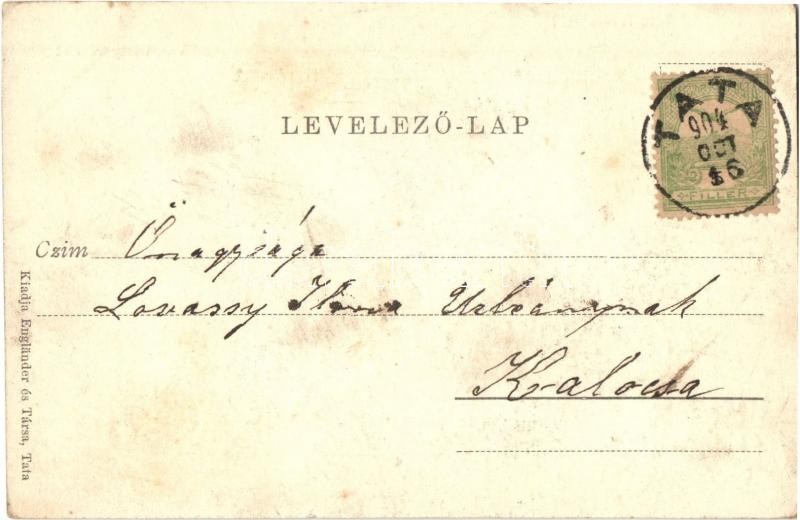 LEVELEZŐ-LAP
TATA
904
OCT
16
FILLER
Czim Önagysága
Lovassy Ilona Urleánynak
Kalocsa
Kiadja Engländer és Társa, Tata